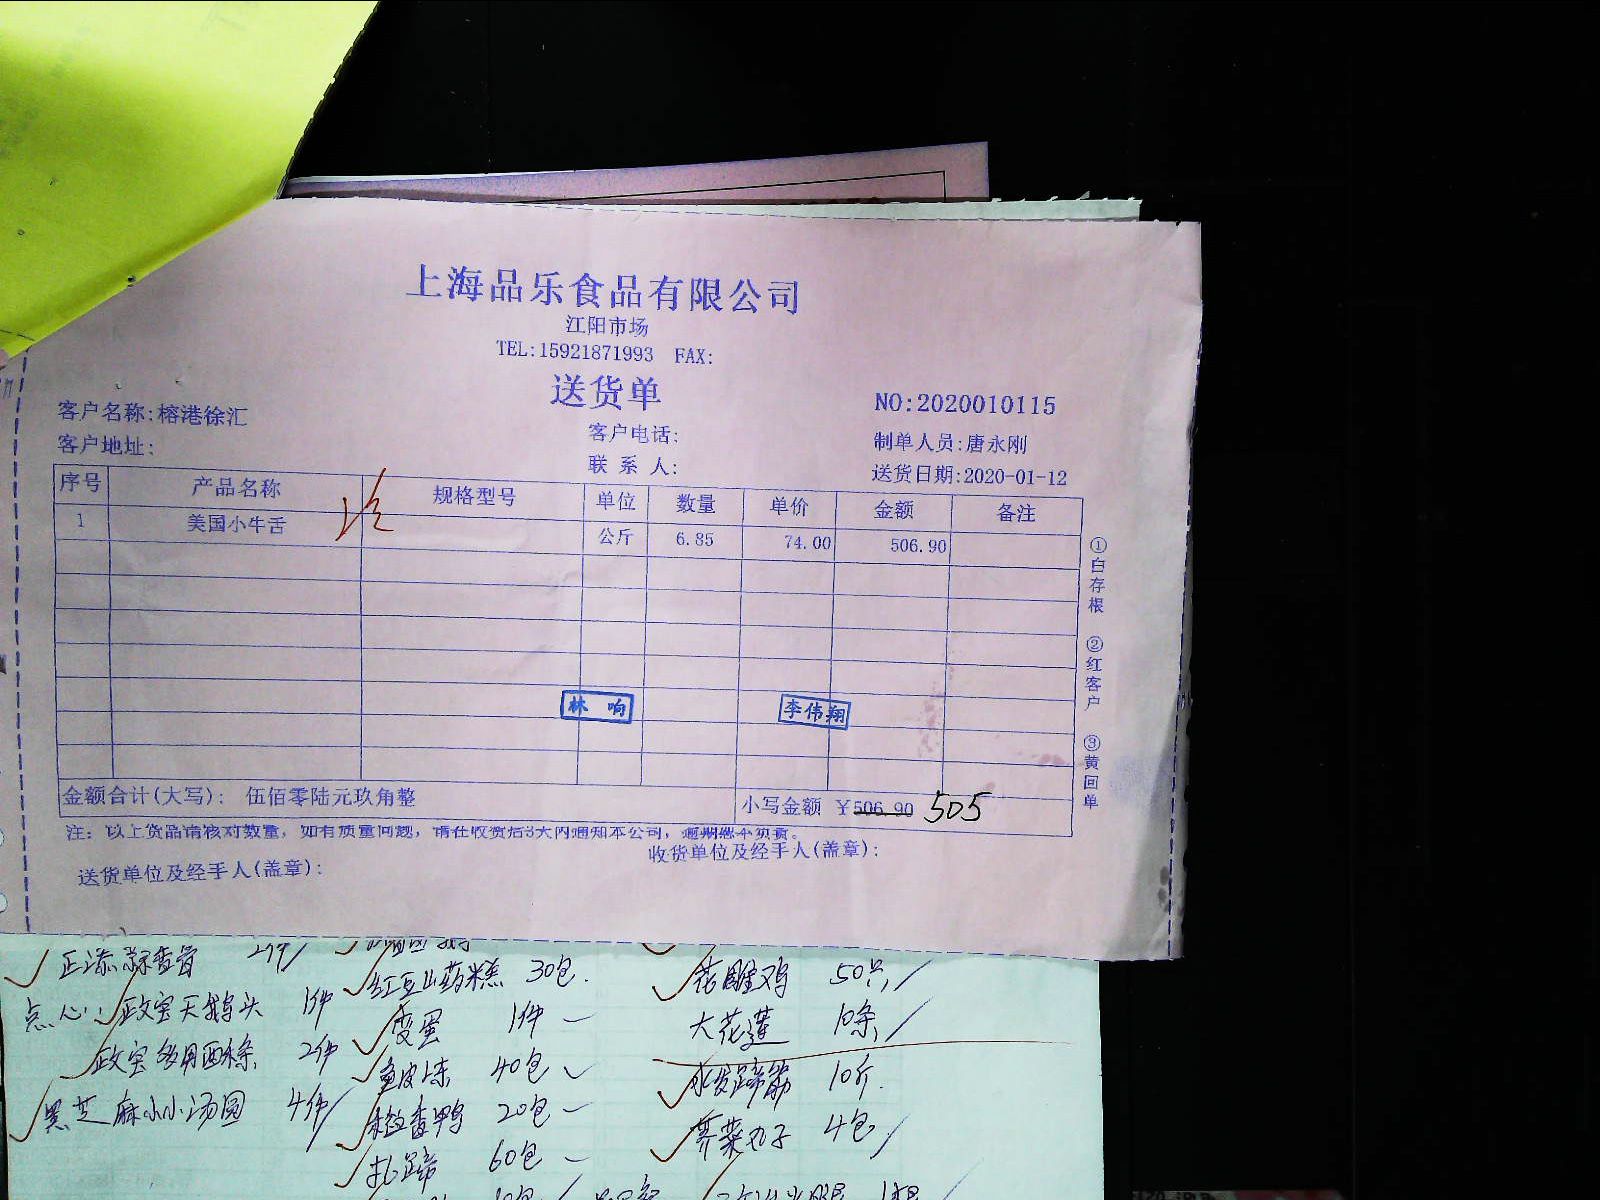 上海品乐食品有限公司
江阳市场
TEL:15921871993 FAX:
送货单
NO:2020010115
客户名称:榕港徐汇
客户电话:
制单人员:唐永刚
客户地址:
联系人:
送货日期:2020-01-12
序号 产品名称 规格型号 单位 数量 单价 金额 备注
1 美国小牛舌 公斤 6.85 74.00 506.90
林响 李伟翔
金额合计(大写): 伍佰零陆元玖角整 小写金额 ￥506.90 505
注：以上货品请核对数量，如有质量问题，请在收货后3天内通知本公司，逾期恕不负责。
送货单位及经手人(盖章):
收货单位及经手人(盖章):
①白存根 ②红客户 ③黄回单
红豆山药糕 30包 花雕鸡 50只
点心: 政宝天鹅头 1件 变蛋 1件 大花莲 10条
2件 鱼皮冻 40包 水发蹄筋 10斤
黑芝麻小小汤圆 4件 20包 荠菜丸子 4包
扎蹄 60包